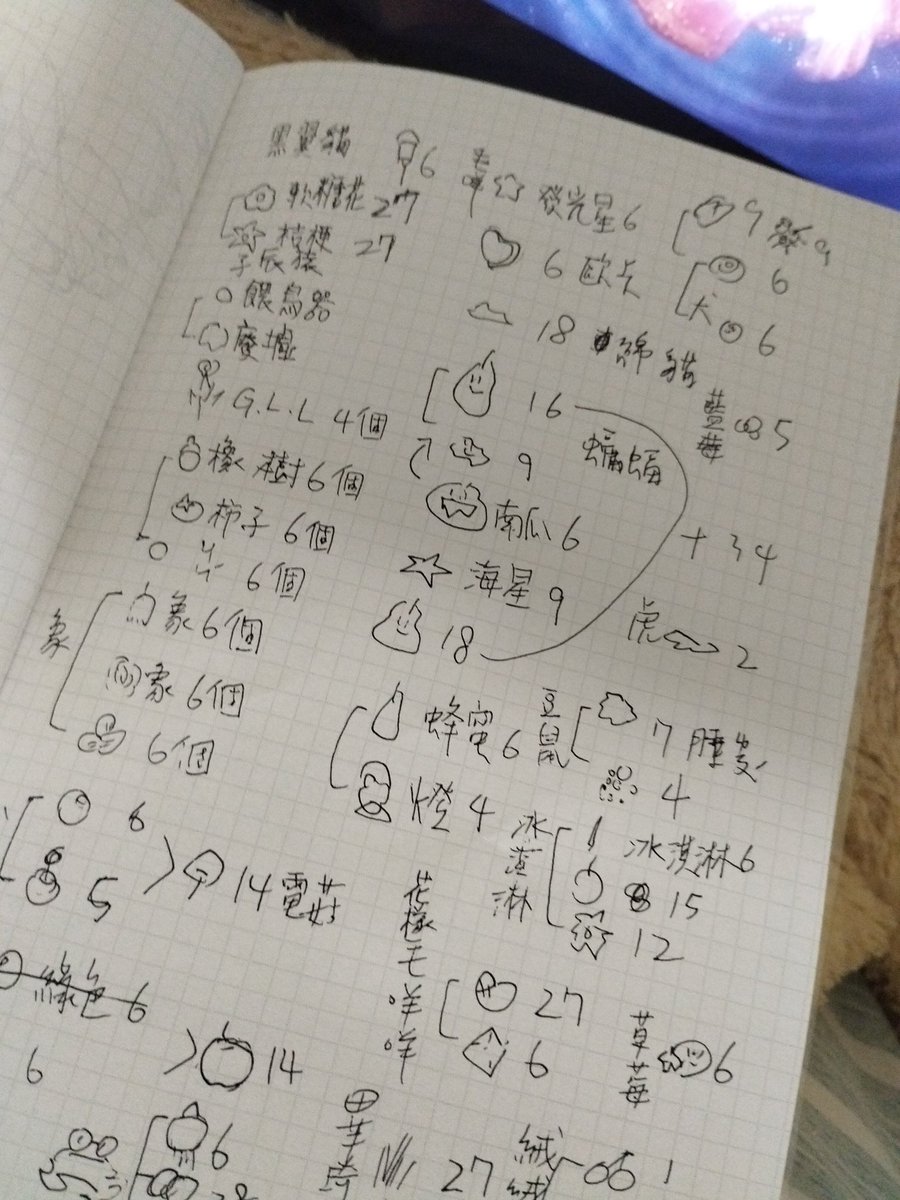 黑翼貓 6
軟糖花 27
桔梗 27
餵鳥器
廢墟
G.L.L 4個
橡樹 6個
柿子 6個
6個
象
象 6個
象 6個
6個
6
5
14 電菇
綠色 6
6
14
6
發光星 6
6 欧卡
18 綿貓
16
9
蝙蝠
南瓜 6
海星 9
18
+34
蜂蜜 6
燈 4
花樣毛咩咩
27
6
27
9
6
犬 6
藍莓 5
虎 2
豆鼠
7 睡
4
冰淇淋
冰淇淋 6
15
12
草莓 6
絨絨 1